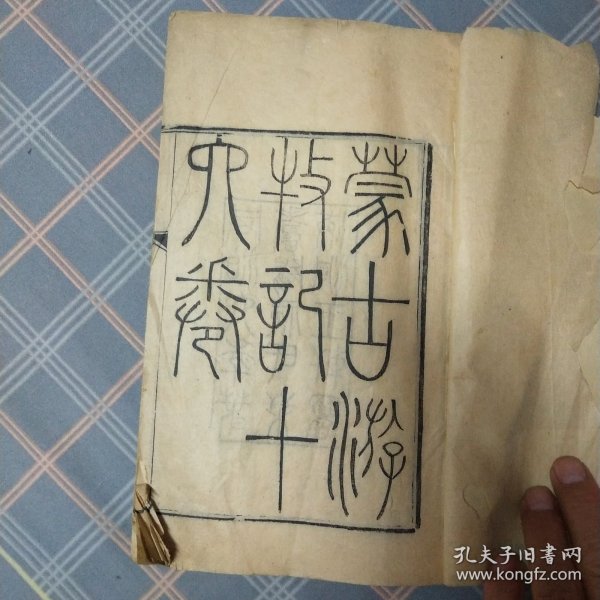 蒙古游
牧記十
六卷
孔夫子旧書网
www.kongfz.com